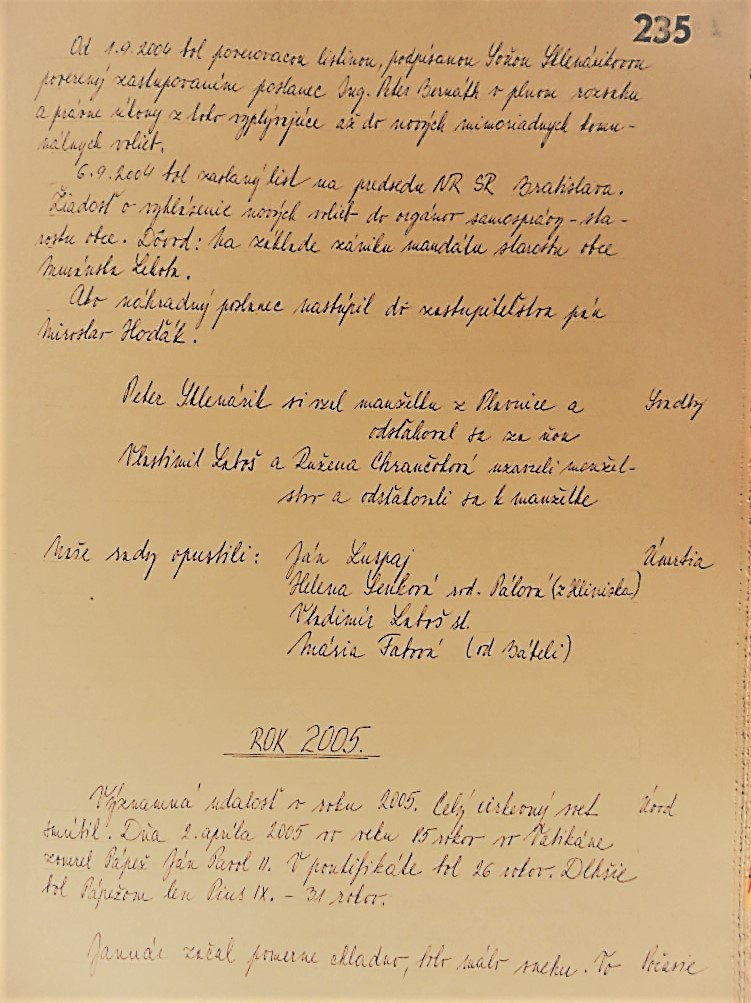 235
Od 1.9.2004 bol poverovacou listinou, podpísanou Soňou Sklenárikovou
poverený zastupovaním poslanec Ing. Peter Bernáth v plnom rozsahu
a právne úkony z toho vyplývajúce až do nových mimoriadnych komu-
nálnych volieb.
6.9.2004 bol zaslaný list na predsedu NR SR Bratislava.
Žiadosť o vyhlásenie nových volieb do orgánov samosprávy - sta-
rostu obce. Dôvod: Na základe zániku mandátu starostu obce
Muránska Lehota.
Ako náhradný poslanec nastúpil do zastupiteľstva pán
Miroslav Hodák.
Peter Sklenárik si vzal manželku z Plavnice a Svadby
odsťahoval sa za ňou
Vlastimil Laboš a Ružena Chrančoková uzavreli manžel-
stvo a odsťahovali sa k manželke
Naše rady opustili: Ján Luspaj Úmrtia
Helena Senková rod. Pálová (z Hliniska)
Vladimír Laboš st.
Mária Fabová (od Báteli)
ROK 2005.
Významná udalosť v roku 2005. Celý cirkevný svet Úvod
smútil. Dňa 2. apríla 2005 vo veku 85 rokov vo Vatikáne
zomrel Pápež Ján Pavol II. V pontifikáte bol 26 rokov. Dlhšie
bol Pápežom len Pius IX. - 31 rokov.
Január začal pomerne chladno, bolo málo snehu. Vo Počasie